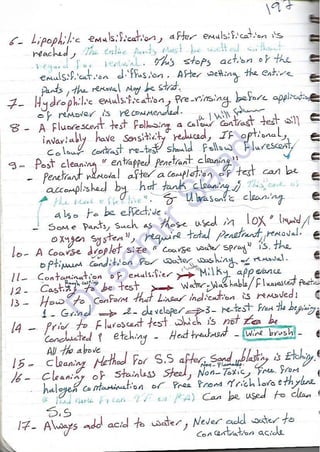 197
6- Lipophilic emulsification, after emulsification is
reached, The entire parts must be wetted without
regard for removal. This stops action of the
emulsification diffusion. After wetting the entire
parts, the removal may be strat.
7- Hydrophilic emulsification, Pre-rinsing before application
of remover is recommended.
8 - A fluorescent test following a colour contrast test will
invariably have sensitivity reduced, If optional,
Colour contrast re-test should follow fluorescent.
9- Post cleaning "entrapped penetrant cleaning"
- Penetrant removal after a completion of test can be
accomplished by hot tank cleaning,
the more effective. & Ultrasonic cleaning
also to be effective.
- Some parts, such as those used in lox "liquid
oxygen system", require total penetrant removal.
10- A Coarse droplet size "coarse water spray" is the
optimum condition for water washing - removal.
11 - Contamination of emulsifier → Milky apperance
12 - Casting to be test → Water-Washable/Fluorescent
13 - How to Conform that Linear indication is removed:
1- Grind → 2- developer → 3- re-test from the begining
14 - Prior to flurosent test which is not to be
conducted? Etching - Heat treatment - Wire brush -
All the above
15 - Cleaning Method for S.S after Sand blasting is Etching.
16 - Cleaning of Stainless Steel, Non-Toxic, free from
halogen contamination or Free from Trichloroethylene
Can be used to clean
S.S
17- Always add acid to water, Never add water to
concentration acide